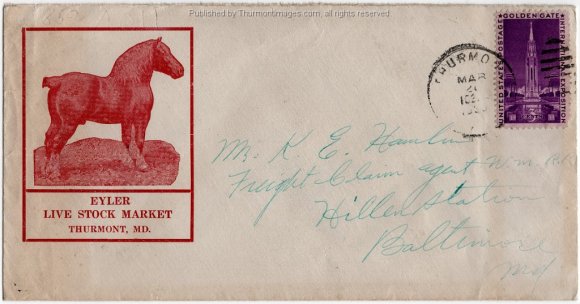 Published by Thurmontimages.com, all rights reserved
GOLDEN GATE
INTERNATIONAL EXPOSITION
UNITED STATES POSTAGE
3 CENTS
THURMO
MAR
EYLER
LIVE STOCK MARKET
THURMONT, MD.
Mr. K. E. Hamlin
Freight Claim agent W. M. R.R.
Hillen Station
Baltimore
Md